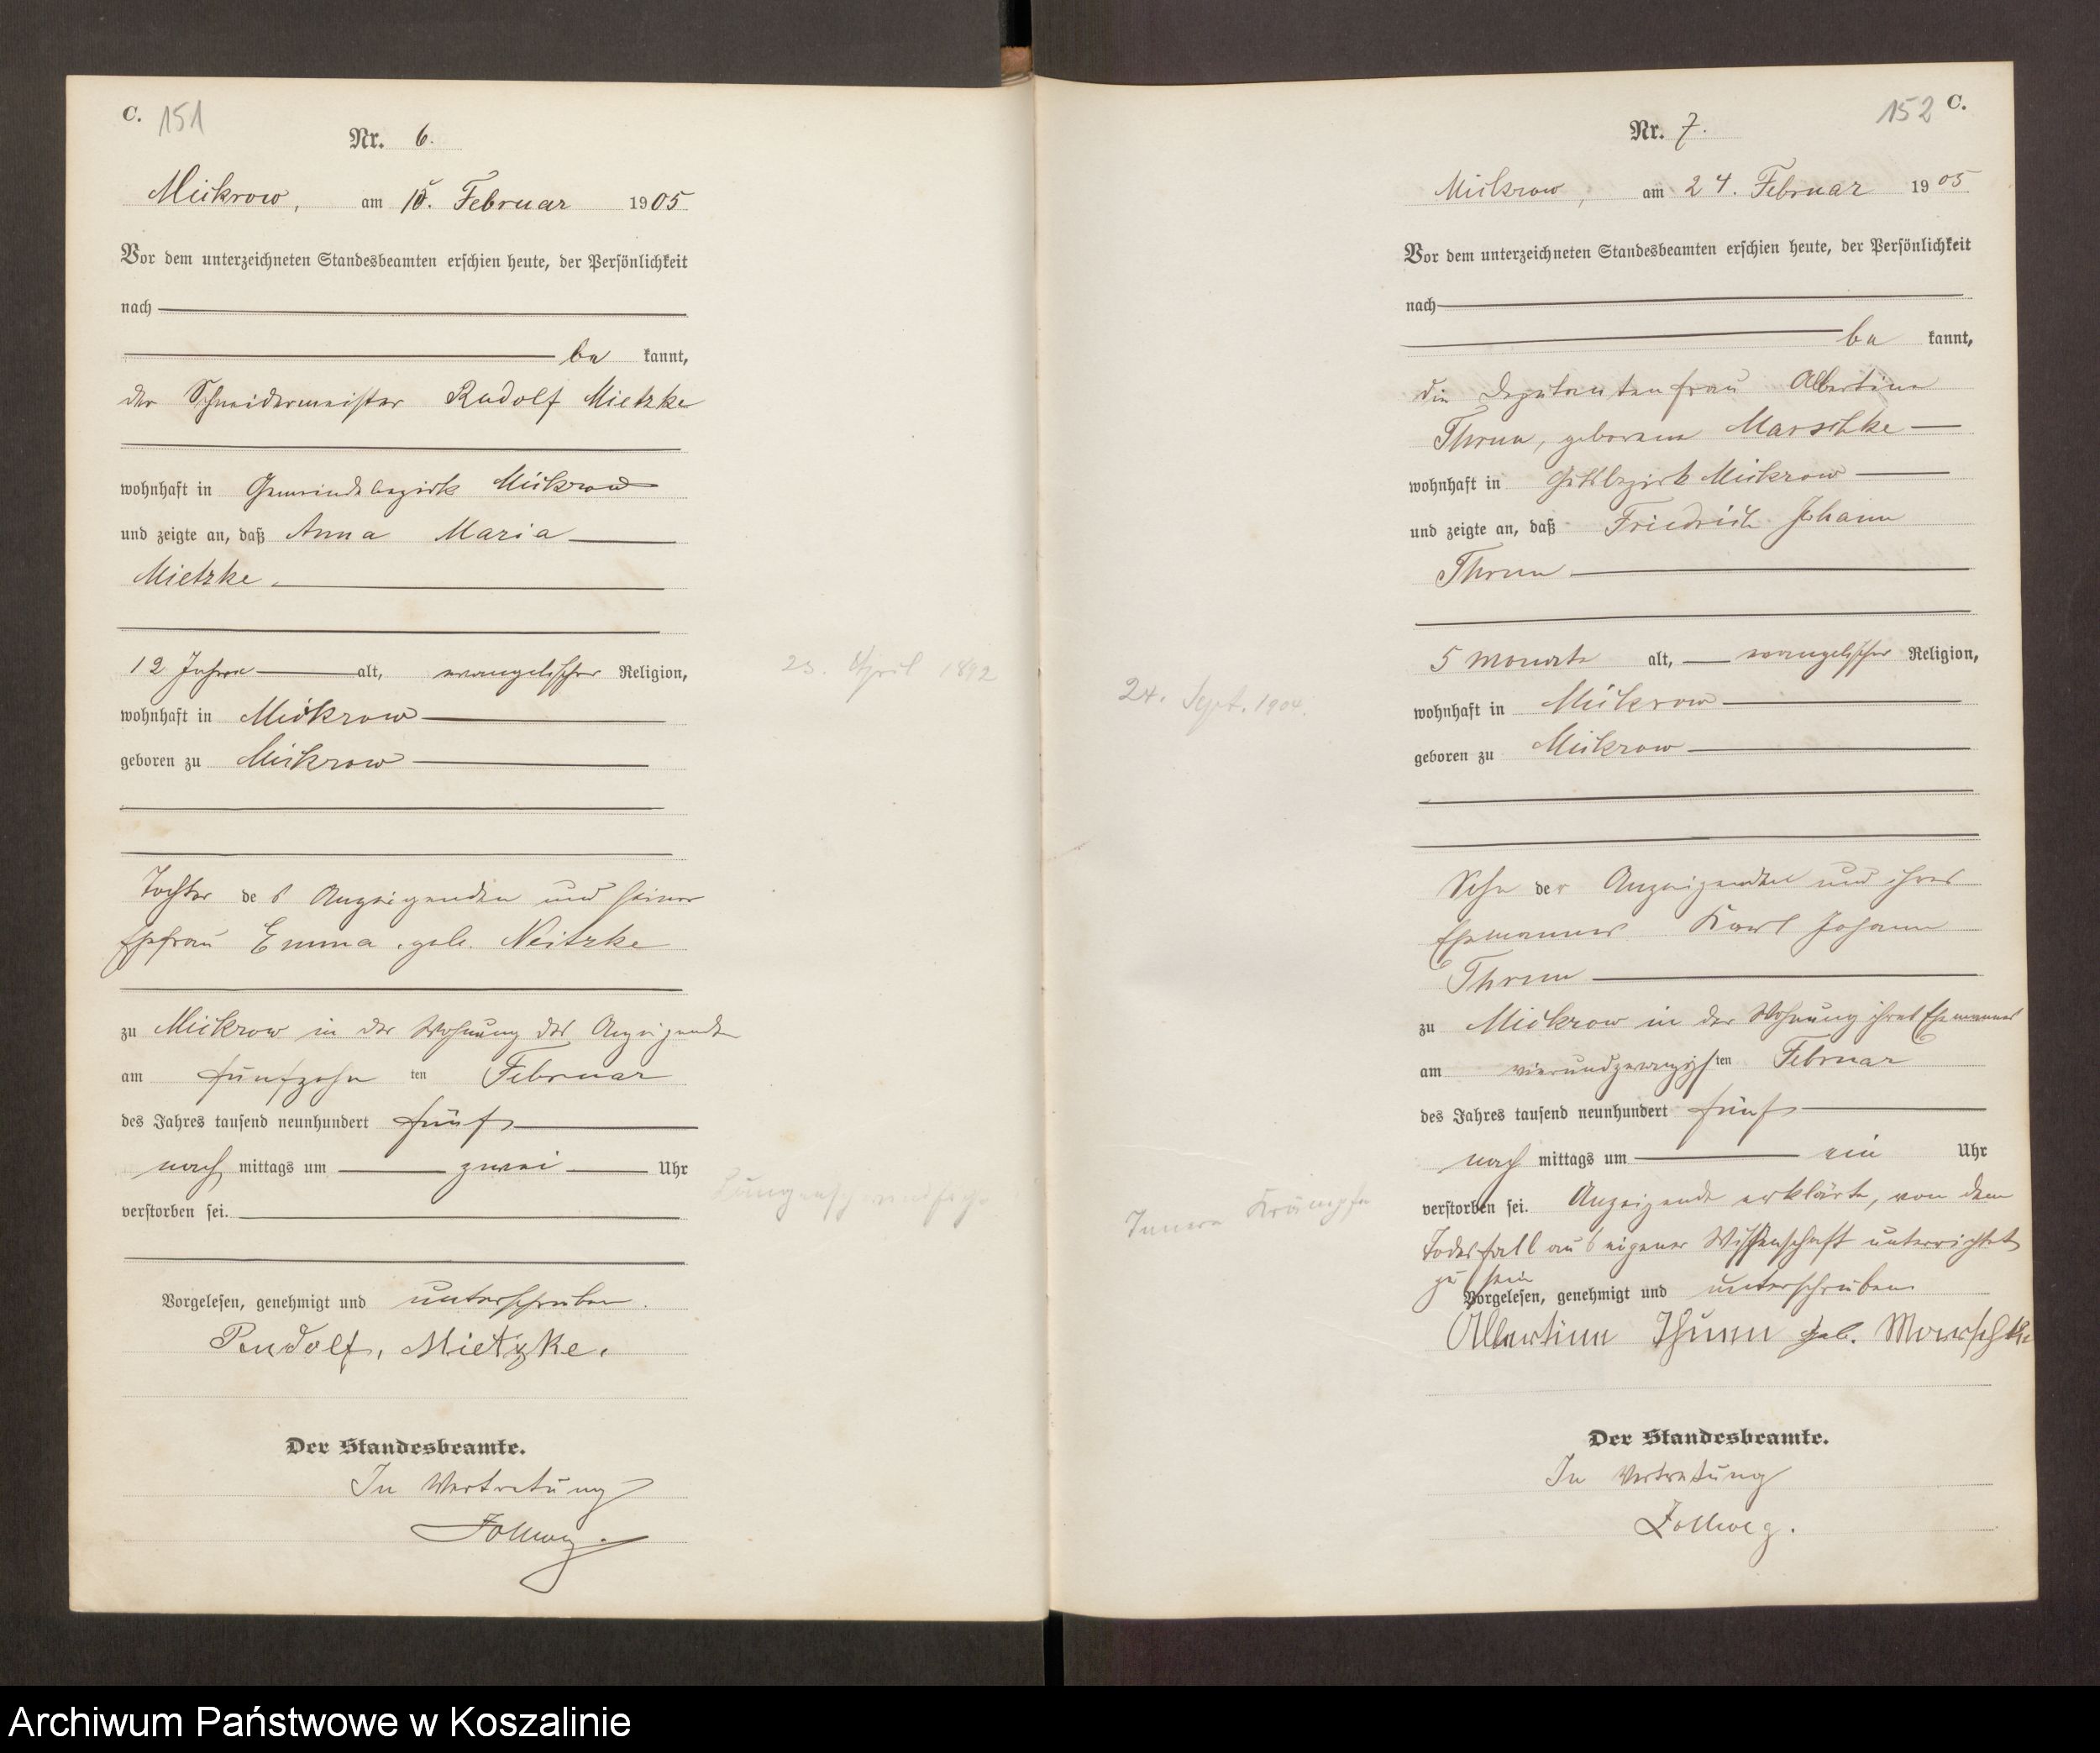 C. 151
Nr. 6.
Mickrow, am 15. Februar 1905
Vor dem unterzeichneten Standesbeamten erschien heute, der Persönlichkeit
nach
be kannt,
der Schneidermeister Rudolf Mietzke
wohnhaft in Gemeindebezirk Mickrow
und zeigte an, daß Anna Maria
Mietzke
12 Jahre alt, evangelischer Religion,
23. April 1892
wohnhaft in Mickrow
geboren zu Mickrow
Tochter des Anzeigenden und seiner
Ehefrau Emma, geb. Neitzke
zu Mickrow in der Wohnung des Anzeigenden
am fünfzehn ten Februar
des Jahres tausend neunhundert fünf
nach mittags um zwei Uhr
Lungenschwindsucht
verstorben sei.
Vorgelesen, genehmigt und unterschrieben.
Rudolf, Mietzke.
Der Standesbeamte.
In Vertretung
Zollweg.
152 C.
Nr. 7.
Mickrow, am 24. Februar 1905
Vor dem unterzeichneten Standesbeamten erschien heute, der Persönlichkeit
nach
be kannt,
die Deputantenfrau Albertine
Thrun, geborene Marschke
wohnhaft in Gutsbezirk Mickrow
und zeigte an, daß Friedrich Johann
Thrun
5 Monate alt, evangelischer Religion,
24. Sept. 1904.
wohnhaft in Mickrow
geboren zu Mickrow
Sohn der Anzeigenden und ihres
Ehemannes Karl Johann
Thrun
zu Mickrow in der Wohnung ihres Ehemannes
am vierundzwanzigsten Februar
des Jahres tausend neunhundert fünf
nach mittags um ein Uhr
Innere Krämpfe
verstorben sei. Anzeigende erklärte, von dem
Todesfall aus eigener Wissenschaft unterrichtet
zu sein
Vorgelesen, genehmigt und unterschrieben
Albertine Thrun geb. Marschke
Der Standesbeamte.
In Vertretung
Zollweg.
Archiwum Państwowe w Koszalinie